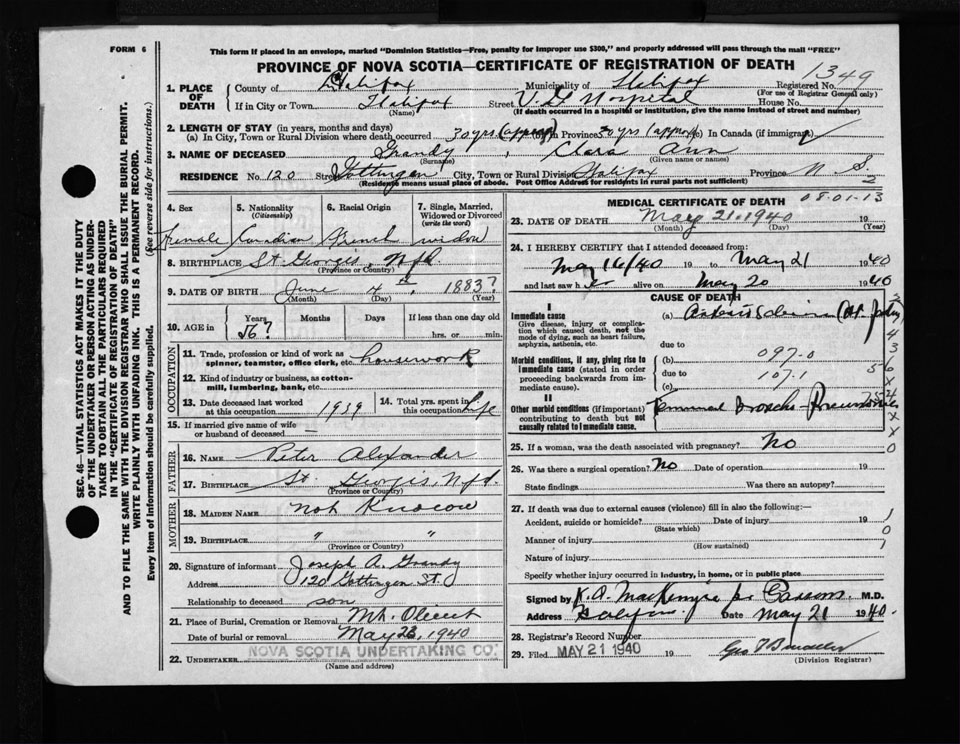 FORM 6
This form if placed in an envelope, marked "Dominion Statistics—Free, penalty for improper use $300," and properly addressed will pass through the mail "FREE"
PROVINCE OF NOVA SCOTIA—CERTIFICATE OF REGISTRATION OF DEATH
1. PLACE OF DEATH
County of Halifax Municipality of Halifax Registered No. 1349
(For use of Registrar General only)
If in City or Town Halifax Street V. G. Hospital House No.
(Name) (If death occurred in a hospital or institution, give the name instead of street and number)
2. LENGTH OF STAY (in years, months and days)
(a) In City, Town or Rural Division where death occurred 30 yrs (approx) in Province 30 yrs (approx) (c) In Canada (if immigrant)
3. NAME OF DECEASED Grandy, Clara Ann
(Surname) (Given name or names)
RESIDENCE No. 120 Street Gottingen City, Town or Rural Division Halifax Province N. S.
(Residence means usual place of abode. Post Office Address for residents in rural parts not sufficient)
2
SEC. 46—VITAL STATISTICS ACT MAKES IT THE DUTY
OF THE UNDERTAKER OR PERSON ACTING AS UNDER-
TAKER TO OBTAIN ALL THE PARTICULARS REQUIRED
IN THE "CERTIFICATE OF REGISTRATION OF DEATH"
AND TO FILE THE SAME WITH THE DIVISION REGISTRAR WHO SHALL ISSUE THE BURIAL PERMIT.
WRITE PLAINLY WITH UNFADING INK. THIS IS A PERMANENT RECORD.
Every item of information should be carefully supplied. (See reverse side for instructions.)
4. Sex 5. Nationality 6. Racial Origin 7. Single, Married,
(Citizenship) Widowed or Divorced
(write the word)
Female Canadian French widow
8. BIRTHPLACE St. Georges, Nfd.
(Province or Country)
9. DATE OF BIRTH June 4th 1883?
(Month) (Day) (Year)
10. AGE in Years Months Days If less than one day old
56? hrs. or min.
OCCUPATION
11. Trade, profession or kind of work as
spinner, teamster, office clerk, etc. housework
12. Kind of industry or business, as cotton-
mill, lumbering, bank, etc.
13. Date deceased last worked
at this occupation 1939
14. Total yrs. spent in
this occupation Life
15. If married give name of wife
or husband of deceased —
FATHER
16. NAME Peter Alexander
17. BIRTHPLACE St. Georges, Nfd.
(Province or Country)
MOTHER
18. MAIDEN NAME Not Known
19. BIRTHPLACE " "
(Province or Country)
20. Signature of informant Joseph A. Grandy
Address 120 Gottingen St.
Relationship to deceased son
21. Place of Burial, Cremation or Removal Mt. Olivet
Date of burial or removal May 23, 1940
22. UNDERTAKER NOVA SCOTIA UNDERTAKING CO.
(Name and address)
MEDICAL CERTIFICATE OF DEATH
08-01-13
23. DATE OF DEATH May 21, 1940 19
(Month) (Day) (Year)
24. I HEREBY CERTIFY that I attended deceased from:
May 16/40 19 to May 21 1940
and last saw her alive on May 20 1940
CAUSE OF DEATH
I
Immediate cause
Give disease, injury or complica-
tion which caused death, not the
mode of dying, such as heart failure,
asphyxia, asthenia, etc.
(a)
due to
Morbid conditions, if any, giving rise to
immediate cause (stated in order
proceeding backwards from im-
mediate cause).
(b) 097.0
due to 107.1
(c)
II
Other morbid conditions (if important)
contributing to death but not
causally related to immediate cause.
Terminal Broncho-Pneumonia
25. If a woman, was the death associated with pregnancy? No
26. Was there a surgical operation? No Date of operation
State findings Was there an autopsy?
27. If death was due to external causes (violence) fill in also the following:—
Accident, suicide or homicide? Date of injury 19
(State which)
Manner of injury
(How sustained)
Nature of injury
Specify whether injury occurred in industry, in home, or in public place
Signed by K. A. MacKenzie M.D.
Address Halifax Date May 21 1940.
28. Registrar's Record Number
29. Filed MAY 21 1940 19
(Division Registrar)